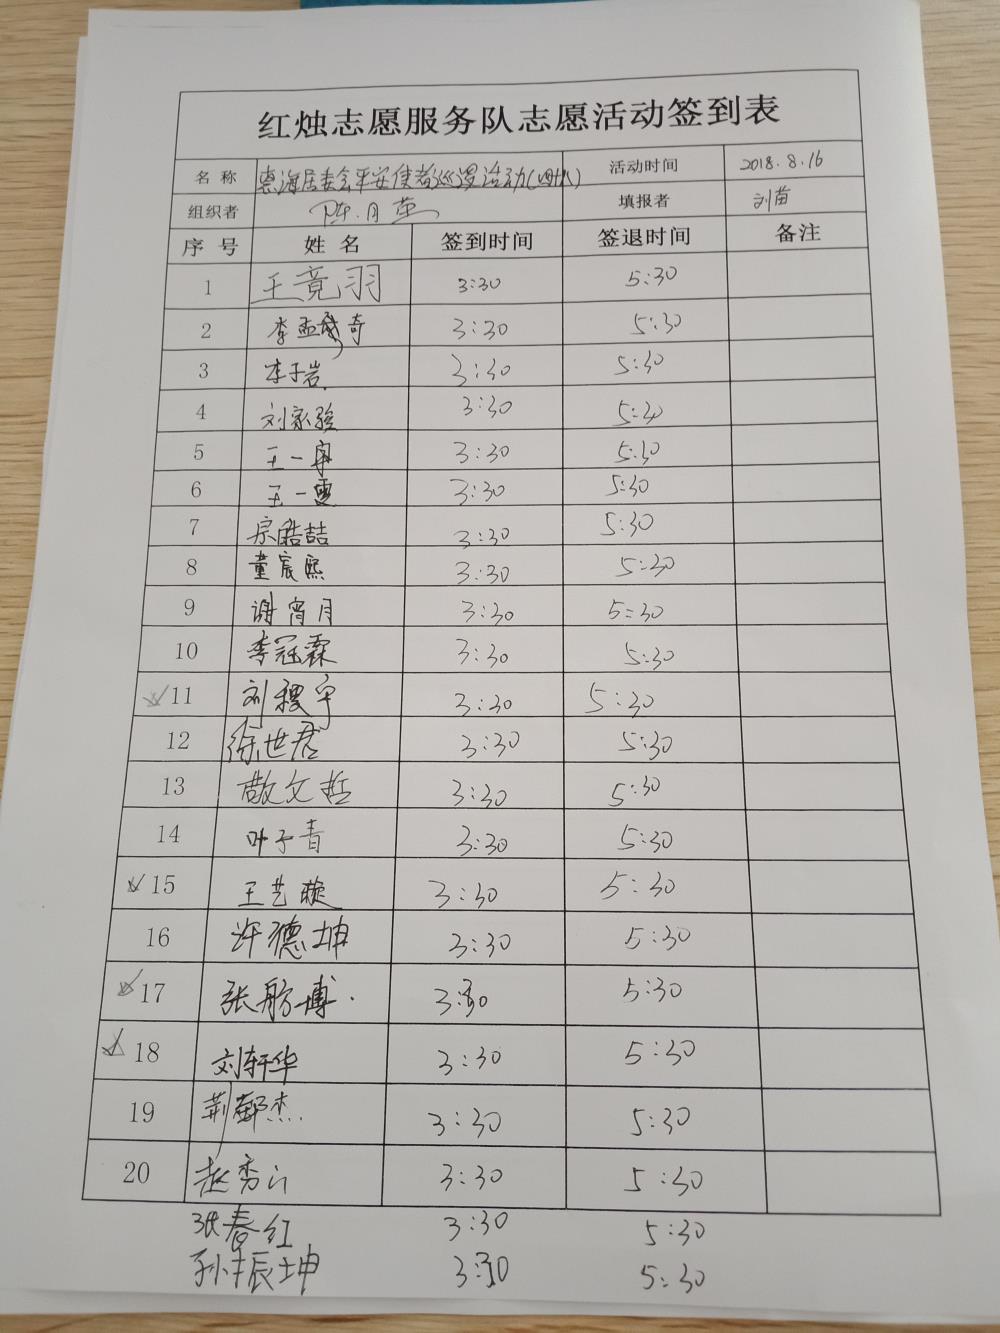 红烛志愿服务队志愿活动签到表
名称 惠海居委会平安使者巡逻活动(四十八) 活动时间 2018.8.16
组织者 陈月英 填报者 刘苗
序号 姓名 签到时间 签退时间 备注
1 王竟羽 3:30 5:30
2 李孟奇 3:30 5:30
3 李于岩 3:30 5:30
4 刘家骏 3:30 5:30
5 王一宁 3:30 5:30
6 王一雯 3:30 5:30
7 宗皓喆 3:30 5:30
8 董宸熙 3:30 5:30
9 谢宵月 3:30 5:30
10 李冠霖 3:30 5:30
11 刘稷宇 3:30 5:30
12 徐世君 3:30 5:30
13 文哲 3:30 5:30
14 叶子青 3:30 5:30
15 王艺璇 3:30 5:30
16 许德坤 3:30 5:30
17 张舫博 3:30 5:30
18 刘轩华 3:30 5:30
19 荆郗杰 3:30 5:30
20 赵秀 3:30 5:30
张春红 3:30 5:30
孙丰辰坤 3:30 5:30